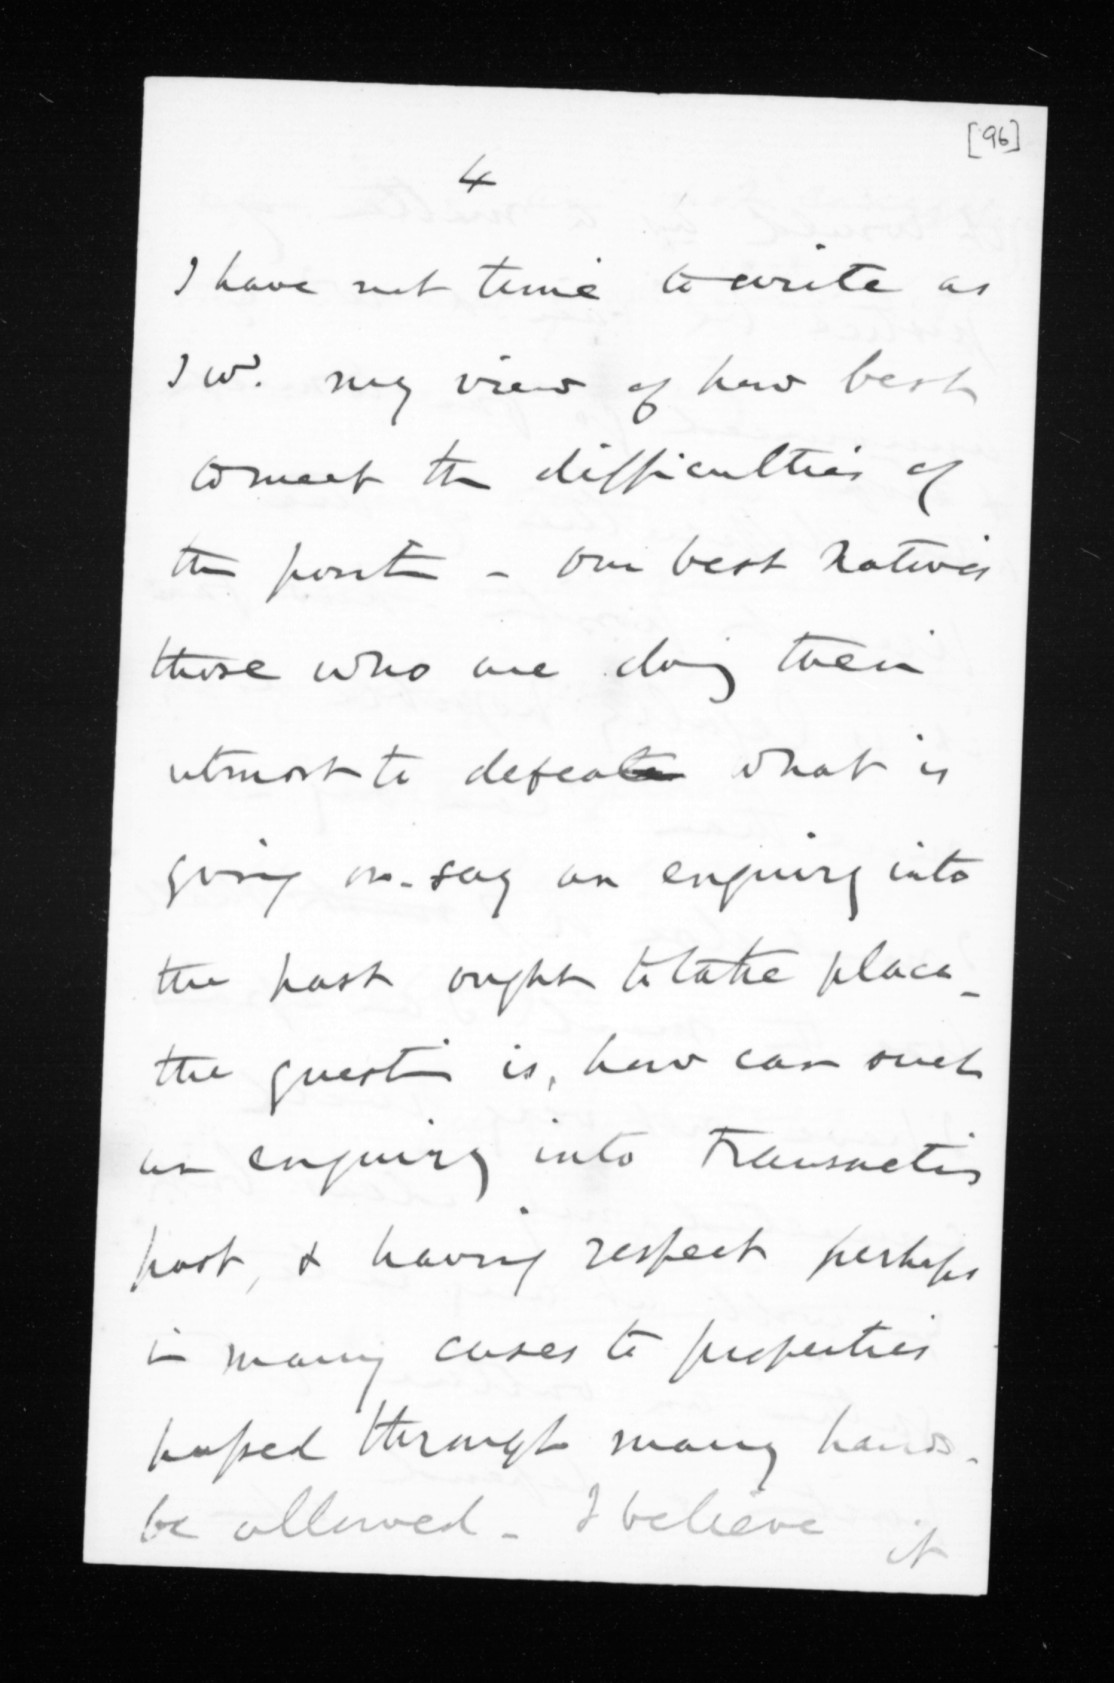 [96]
4
I have not time to write as
I wd. my view of how best
to meet the difficulties of
the posit - our best Natives
those who are doing their
utmost to defeat what is
going on - say an enquiry into
the past ought to take place -
the questn is, how can such
an enquiry into transactns
past, & having respect perhaps
in many cases to properties
passed through many hands -
be allowed - I believe it